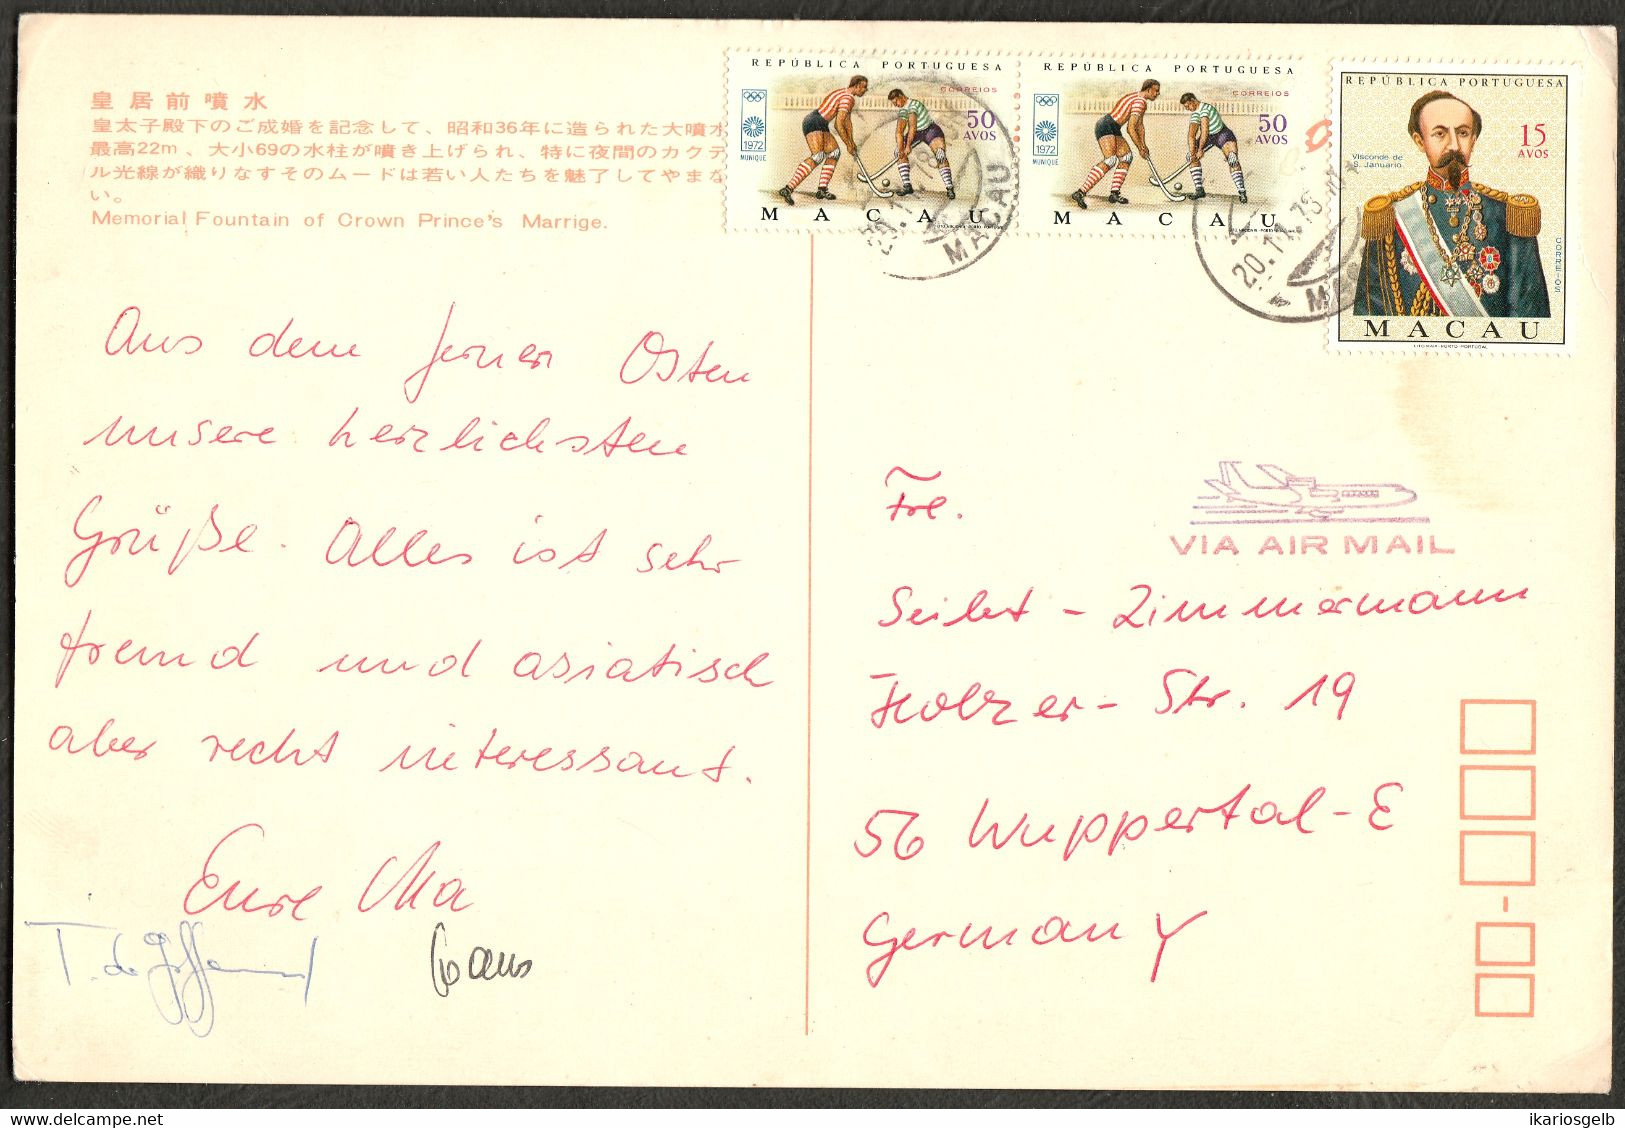 皇居前噴水
皇太子殿下のご成婚を記念して、昭和36年に造られた大噴水
最高22m、大小69の水柱が噴き上げられ、特に夜間のカクテ
ル光線が織りなすそのムードは若い人たちを魅了してやまな
い。
Memorial Fountain of Crown Prince's Marrige.
REPÚBLICA PORTUGUESA
CORREIOS
50
AVOS
1972
MUNIQUE
MACAU
REPÚBLICA PORTUGUESA
CORREIOS
50
AVOS
1972
MUNIQUE
MACAU
REPÚBLICA PORTUGUESA
15
AVOS
Visconde de
S. Januário
CORREIOS
MACAU
MACAU
Aus dem ferner Osten
unsere herzlichsten
Grüße. Alles ist sehr
fremd und asiatisch
aber recht interessant.
Eure
Klaus
VIA AIR MAIL
Frl.
Seibet - Zimmermann
Holzer-Str. 19
56 Wuppertal-E
Germany
ikariosgelb